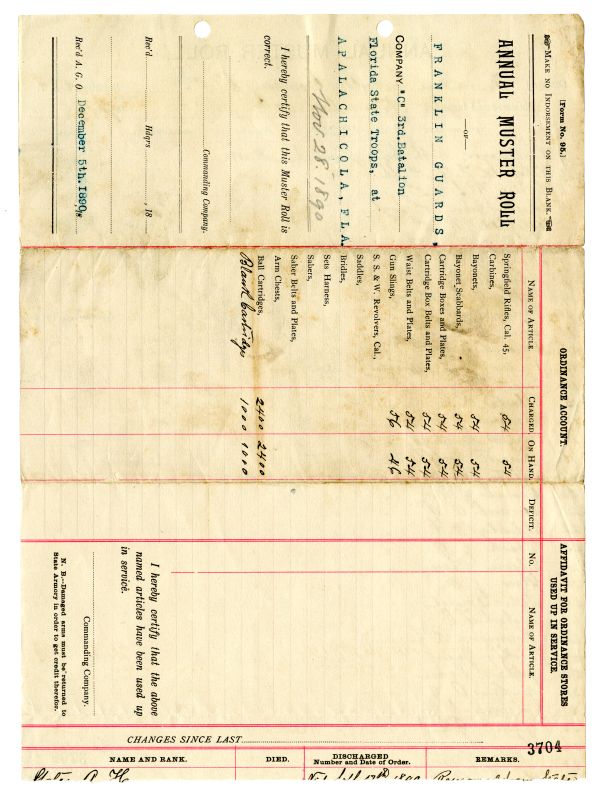 [Form No. 95.]
MAKE NO INDORSEMENT ON THIS BLANK.
ANNUAL MUSTER ROLL
—OF—
FRANKLIN GUARDS,
COMPANY "C" 3rd. Batalion
Florida State Troops, at
APALACHICOLA, FLA.
Nov 28. 1890
I hereby certify that this Muster Roll is
correct.
Commanding Company.
Rec'd Hdqrs , 18
Rec'd A. G. O. December 5th. 1890
ORDINANCE ACCOUNT.
NAME OF ARTICLE CHARGED. ON HAND. DEFICIT.
Springfield Rifles, Cal. 45, 54 54
Carbines,
Bayonets, 54 54
Bayonet Scabbards, 54 54
Cartridge Boxes and Plates, 54 54
Cartridge Box Belts and Plates, 54 54
Waist Belts and Plates, 54 54
Gun Slings, 56 46
S. S. & W. Revolvers, Cal.,
Saddles,
Bridles,
Sets Harness,
Sabers,
Saber Belts and Plates,
Arm Chests,
Ball Cartridges, 2400 2400
Blank Cartridges 1000 1000
AFFIDAVIT FOR ORDINANCE STORES
USED UP IN SERVICE.
No. NAME OF ARTICLE.
I hereby certify that the above
named articles have been used up
in service.
Commanding Company.
N. B.—Damaged arms must be returned to
State Armory in order to get credit therefor.
CHANGES SINCE LAST
3704
NAME AND RANK. DIED. DISCHARGED
Number and Date of Order. REMARKS.